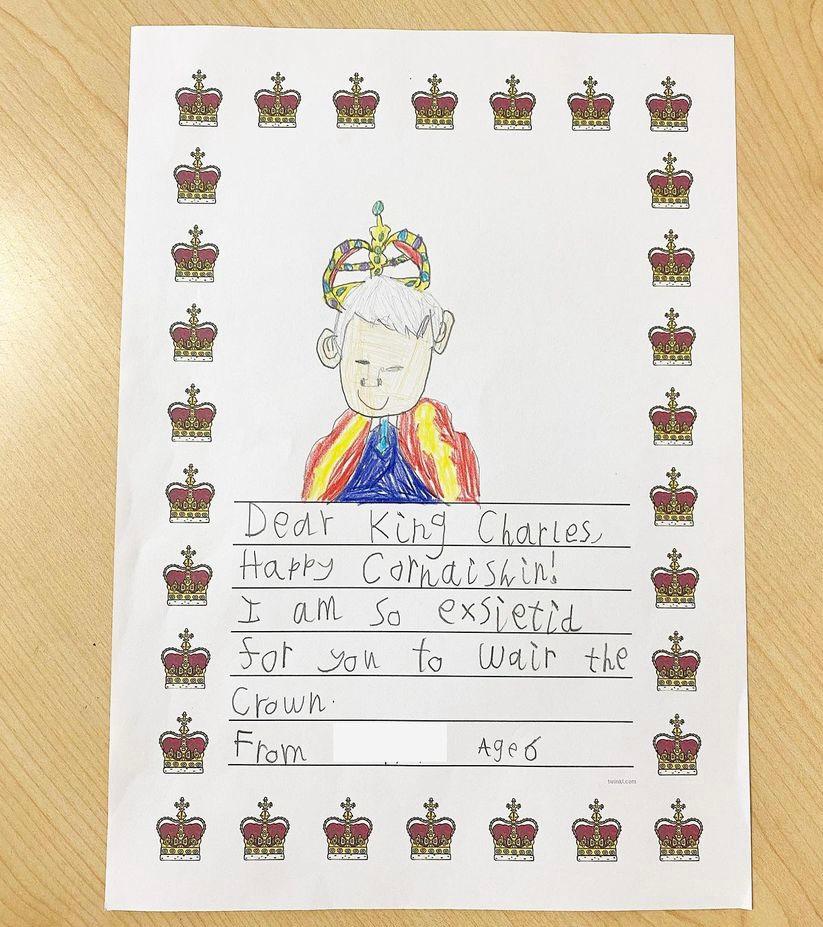 Dear King Charles,
Happy Cornaishin!
I am so exsietid
for you to wair the
Crown.
From Age 6
twinkl.com